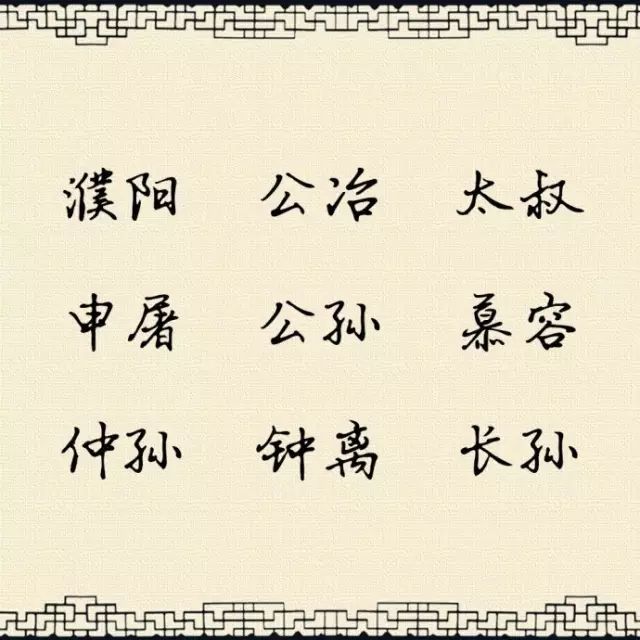 濮阳 公冶 太叔
申屠 公孙 慕容
仲孙 钟离 长孙